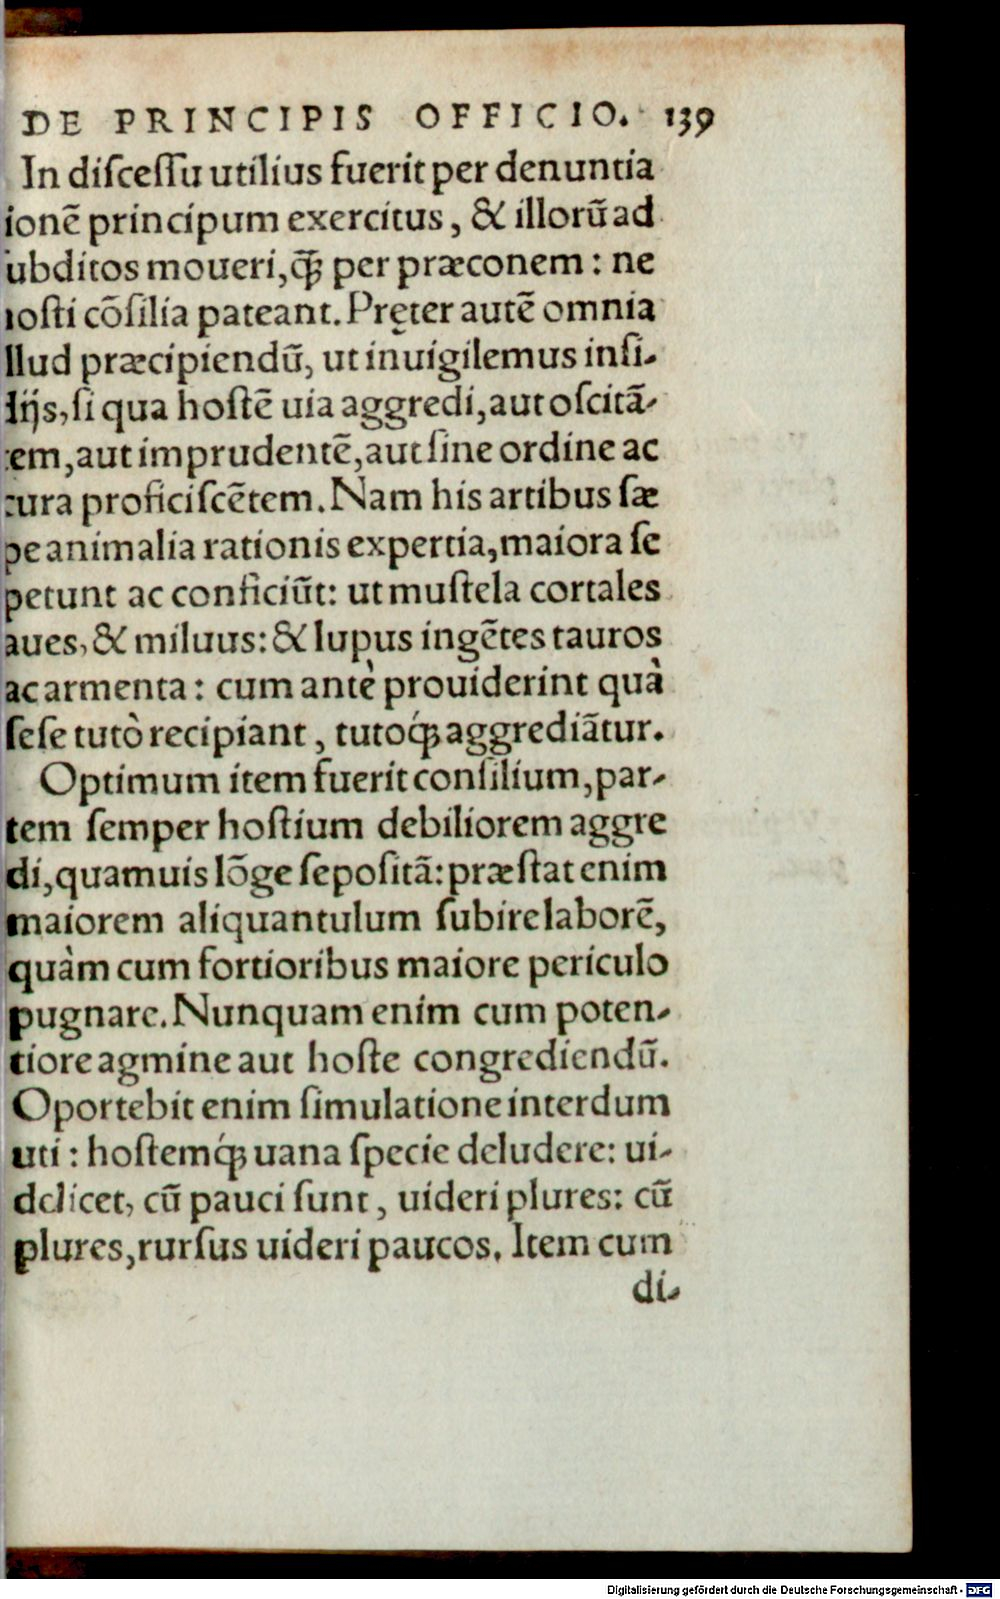 DE PRINCIPIS OFFICIO. 139
In discessu utilius fuerit per denuntia
ionē principum exercitus, & illorū ad
ubditos moueri, q̄ꝫ per præconem: ne
osti cōsilia pateant. Pręter autē omnia
llud præcipiendū, ut inuigilemus insi-
dijs, si qua hostē uia aggredi, aut oscitā-
em, aut imprudentē, aut sine ordine ac
cura proficiscētem. Nam his artibus sæ
pe animalia rationis expertia, maiora se
petunt ac conficiūt: ut mustela cortales
aues, & miluus: & lupus ingētes tauros
ac armenta: cum antè prouiderint quà
sese tutò recipiant, tutoq́ꝫ aggrediātur.
Optimum item fuerit consilium, par-
tem semper hostium debiliorem aggre
di, quamuis lōge sepositā: præstat enim
maiorem aliquantulum subire laborē,
quàm cum fortioribus maiore periculo
pugnare. Nunquam enim cum poten-
tiore agmine aut hoste congrediendū.
Oportebit enim simulatione interdum
uti: hostemq́ꝫ uana specie deludere: ui-
delicet, cū pauci sunt, uideri plures: cū
plures, rursus uideri paucos. Item cum
di-
Digitalisierung gefördert durch die Deutsche Forschungsgemeinschaft - DFG